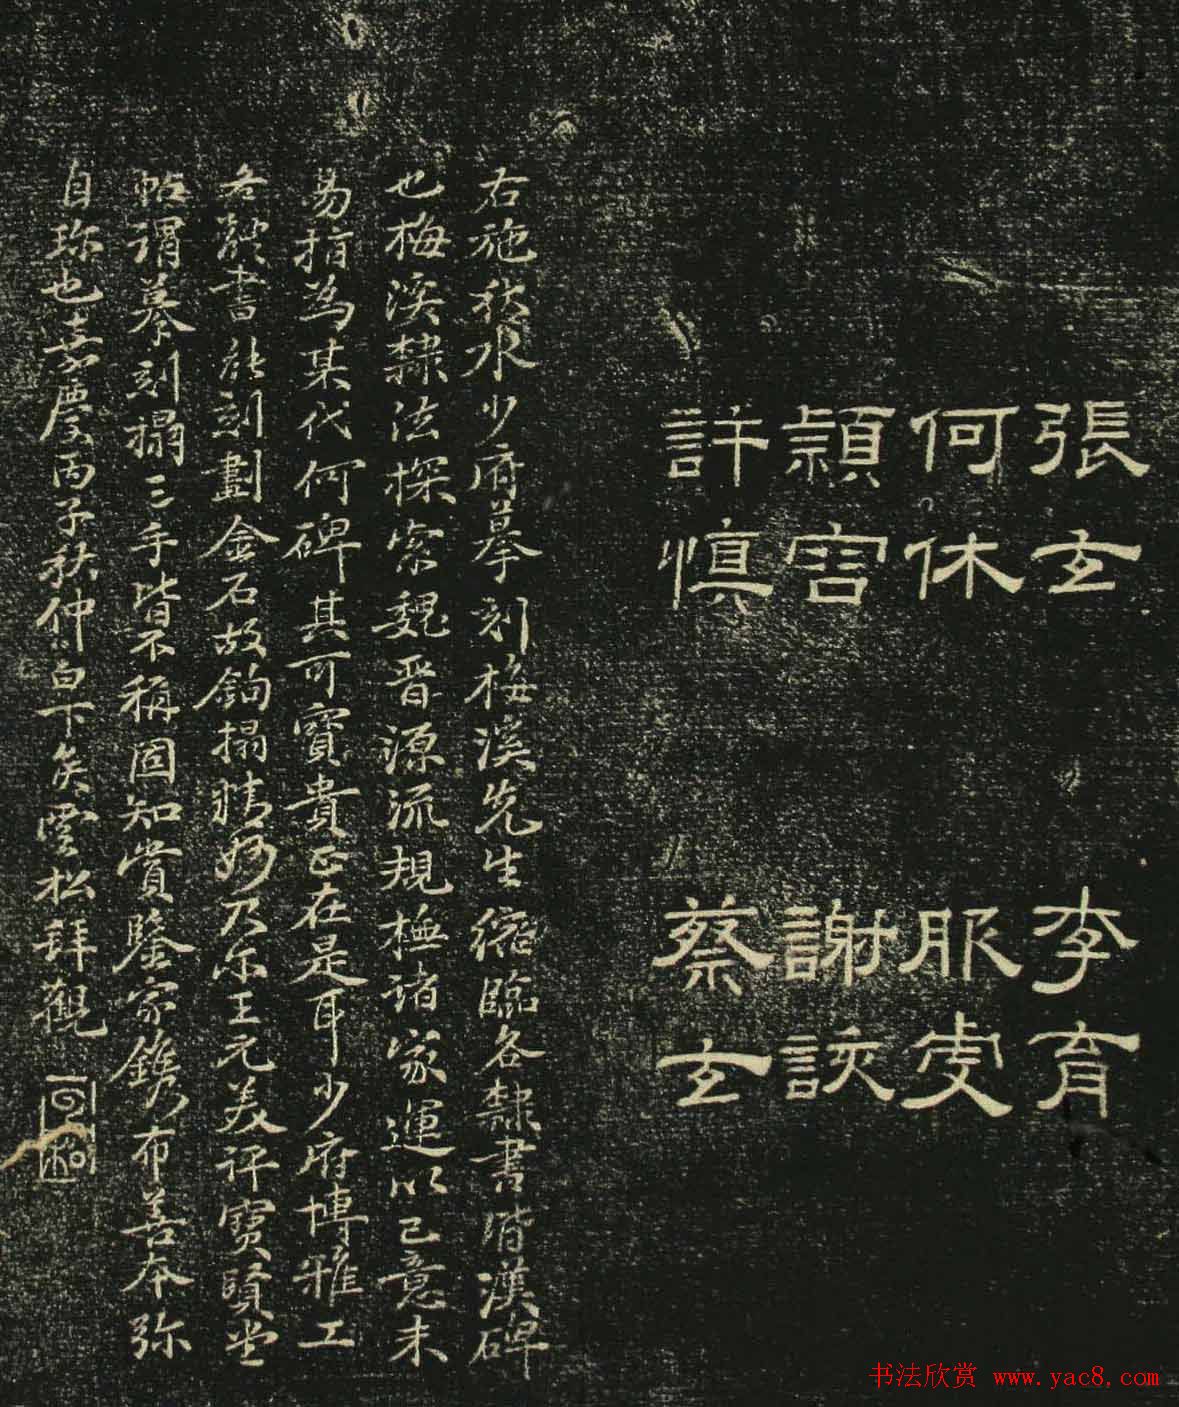 張玄 李育
何休 服虔
頴容 謝該
許慎 蔡玄
右施秋水少府摹刻梅溪先生縮臨各隸書階漢碑
也梅溪隸法探索魏晋源流規橅諸家運以己意未
易指為某代何碑其可寳貴正在是耳少府博雅工
各體書能刻劃金石故鉤搨精妙乃尔王元美評寳賢堂
帖謂摹刻搨三手皆不稱固知賞鑒家鐫布善本弥
自珎也嘉慶丙子秋仲白下矦雲松拜觀
书法欣赏 www.yac8.com